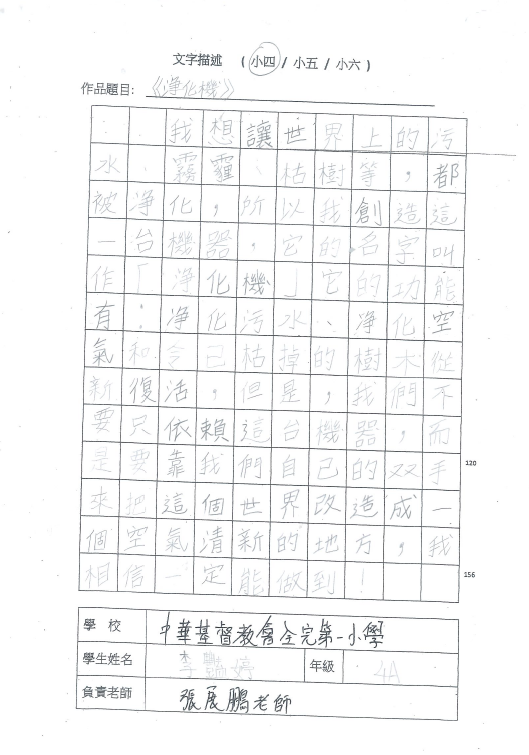 文字描述 （小四 / 小五 / 小六 ）
作品題目: 《淨化機》
我想讓世界上的污
水、霧霾、枯樹等，都
被淨化，所以我創造這
一台機器，它的名字叫
作「淨化機」它的功能
有：淨化污水、淨化空
氣和令已枯掉的樹木從
新復活，但是，我們不
要只依賴這台機器，而
是要靠我們自己的双手
120
來把這個世界改造成一
個空氣清新的地方，我
相信一定能做到！
156
學 校 中華基督教會全完第一小學
學生姓名 李 婷 年級 4A
負責老師 張展鵬老師